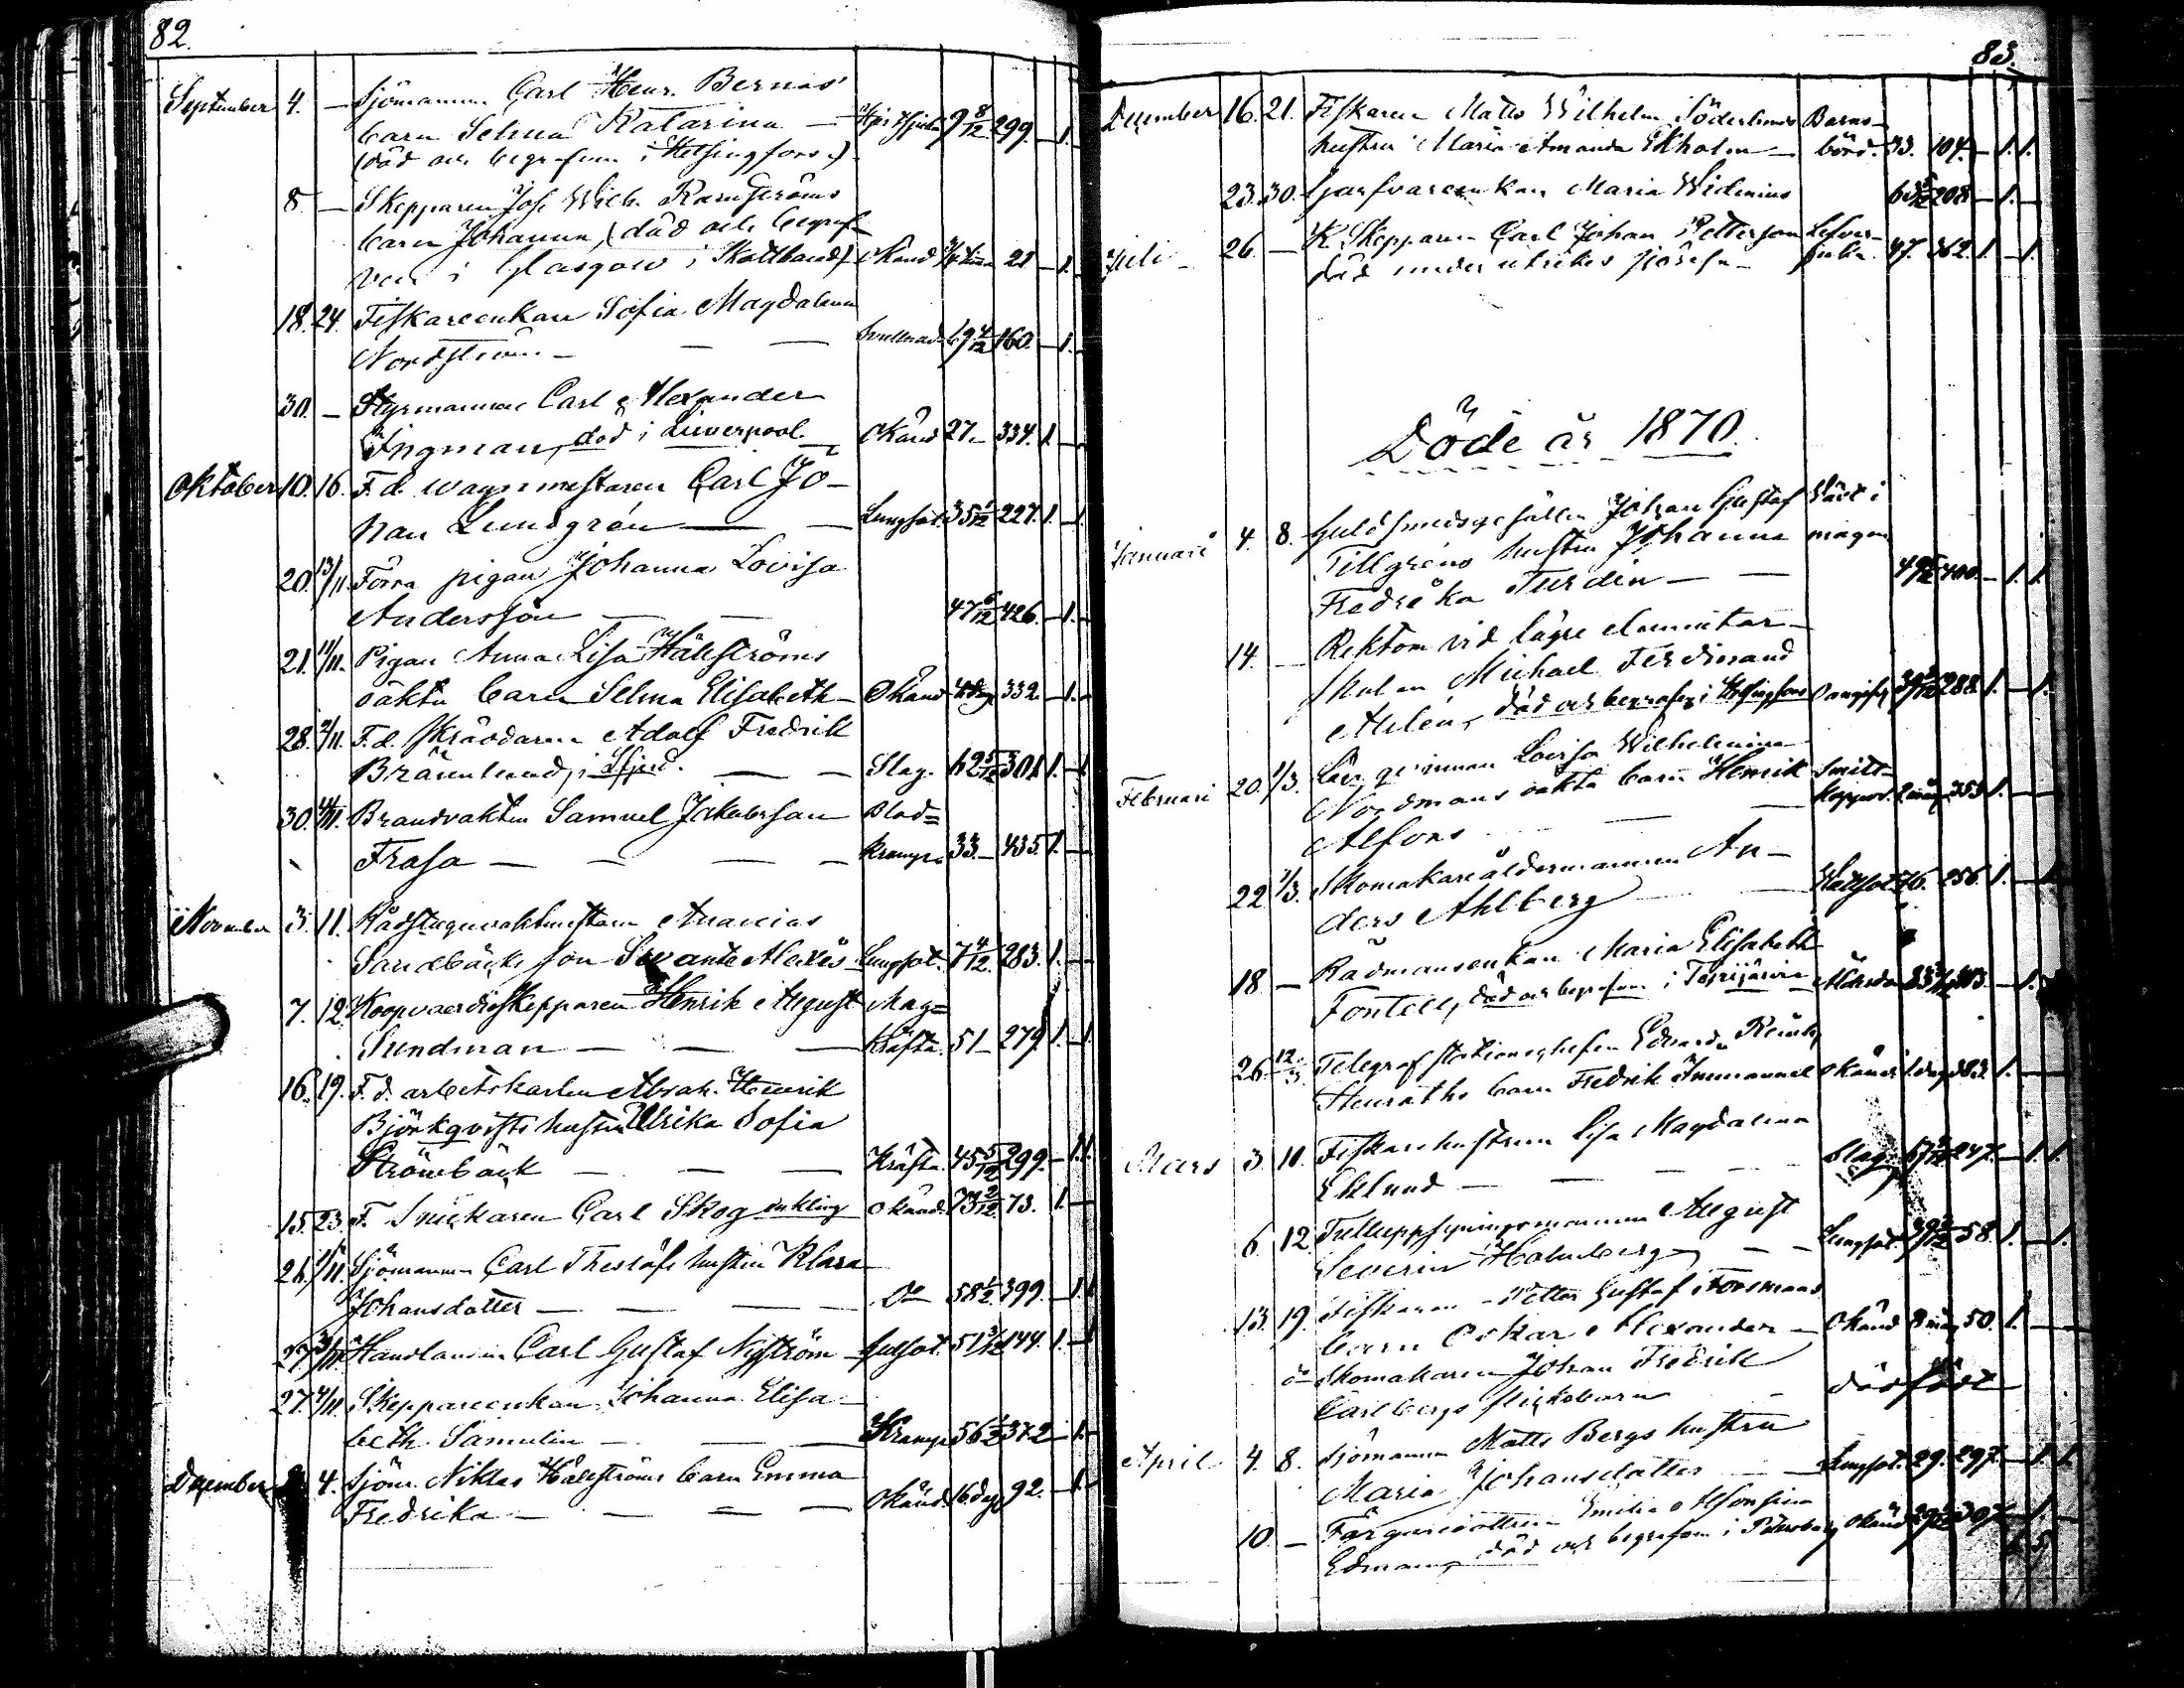 82.
September 4. — Sjömannen Carl Henr. Bernas'
barn Selma Katarina — 9 8/12 299. — 1.
(död och begrafven i Helsingfors.)
8. — Skepparen Jos. Wilh. Ramströms
barn Johanna, (död och begraf-
ven i Glasgow i Skottland) Okänd 21 — 1.
18. 24. Fiskareenkan Sofia Magdalena
Nordström — — — 69 160. — 1.
30. — Styrmannen Carl Alexander
Ingman, död i Liverpool. Okänd 27. — 334. 1. —
Oktober 10. 16. F. d. wagnmestaren Carl Jo-
han Lundgrén — — Lungsot. 35 227. 1. — 1.
20. 13/11 Förra pigan Johanna Lovisa
Andersson — — 47 6/12 426. — 1. —
21. Pigan Anna Lisa Hällströms
oäkta barn Selma Elisabeth — Okänd 4 dag 332. — 1.
28. F. d. Skräddaren Adolf Fredrik
Brännlund, — — Slag. 62 5/12 301. 1. — 1.
30. Brandvakten Samuel Jakobsson Blod=
Frasa — — — — kramp. 33. — 435. 1. —
November 3. 11. Rådstuguvaktmestaren Ananias
Sandbäcks son Swante Alexis Lungsot. 7 4/12. 283. 1. —
7. 12. Koopvaerdieskepparen Henrik August Mag=
Sundman — — — kräfta. 51 — 279. 1. — 1.
16. 19. F. d. arbetskarlen Abrah. Henrik
Björkqvists hustru Ulrika Sofia
Strömbäck — — — Kräfta. 45 5/12 299. — 1. 1.
15. 23. F. Snickaren Carl Skog enkling Okänd. 73 2/12. 73. 1. —
26. Sjömannen Carl Theslöfs hustru Klara
Johansdotter — — — Do 58 399. — 1. 1.
27. Handlanden Carl Gustaf Nyström — Gulsot. 51 144. 1. — 1.
27. Skeppareenkan Johanna Elisa-
beth Samulin — — — Kramp. 56 372 — 1. —
December 4. Sjöm. Niklas Hällströms barn Emma
Fredrika — — — — Okänd. 16 dag. 92. — 1.
83.
December 16. 21. Fiskaren Matts Wilhelm Söderlunds Barns-
hustru Maria Amanda Ekholm — börd. 33. 104. — 1. 1.
23. 30. Garfvareenkan Maria Widenius 208. — 1. —
Juli — 26. — K. Skepparen Carl Johan Petterson Lefver-
död under utrikes — 47. 362. 1. — 1.
Döde år 1870.
Januari 4. 8. Guldsmedsgesällen Johan Gustaf Sårt i
Tillgréns hustru Johanna magen
Fredrika Turdin — — 400. — 1. 1.
14. — Rektorn vid lägre elementar-
skolan Michael Ferdinand
Ahlén, död och begrafven i Helsingfors 288. 1. — 1.
Februari 20. 1/3. Lovisa Wilhelmina
Nordmans oäkta barn Henrik Smitt-
Alfons — — koppor. 353. 1. —
22 1/3. Skomakareåldermannen An-
ders Ahlberg — Hallsot. 76. 256. 1. —
18. — Rådmansenkan Maria Elisabeth
Fontell, död och begrafven i Terrijärvi Ålderdom 83 — 1.
26. 12/3. Telegrafstationschefen Edvard
barn Fredrik Immanuel Okänd. 1 dag 1. —
Mars 3. 10. Fiskarehustrun Lisa Magdalena
Eklund — — — Slag. 67 247. — 1. 1.
6. 12. Tulluppsyningsmannen August
Severin Holmberg — — Lungsot. 39 58. 1. — 1.
13. 19. Fiskaren Petter Gustaf Forsmans
barn Oskar Alexander — Okänd 8 mån 50. 1. —
Skomakaren Johan Fredrik
Carlbergs flickebarn — dödfödt
April 4. 8. Sjömannen Matts Bergs hustru
Maria Johansdotter — — Lungsot. 29. 297. — 1. 1.
10. — Färgaredottren Emilia Alfonsina
Edman, död och begrafven i Petersburg Okänd 29 307 — 1. —